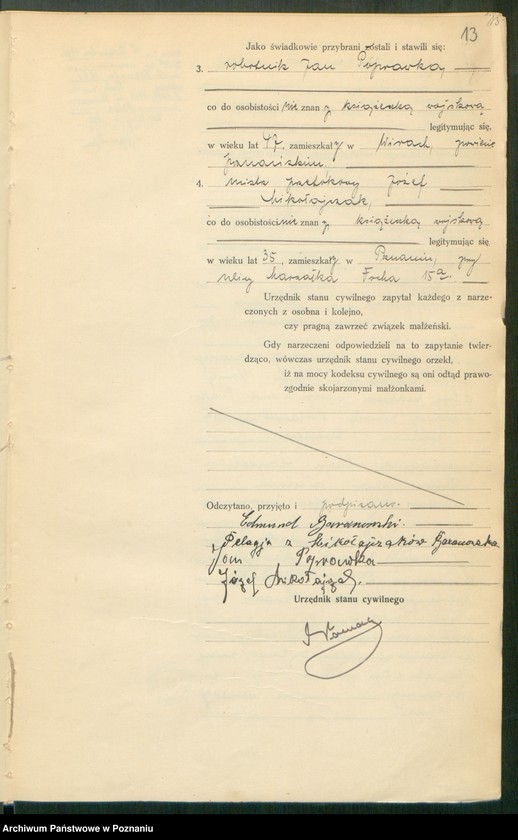 13
Jako świadkowie przybrani zostali i stawili się:
3. robotnik Jan Poprawka,
co do osobistości nie znan y książeczką wojskową
legitymując się,
w wieku lat 47, zamieszkał y w powiecie
4. mistrz Józef
Mikołajczak,
co do osobistości nie znan y książeczką wojskową
legitymując się
w wieku lat 35, zamieszkał y w Poznaniu, przy
ulicy Marszałka Focha 15a.
Urzędnik stanu cywilnego zapytał każdego z narze-
czonych z osobna i kolejno,
czy pragną zawrzeć związek małżeński.
Gdy narzeczeni odpowiedzieli na to zapytanie twier-
dząco, wówczas urzędnik stanu cywilnego orzekł,
iż na mocy kodeksu cywilnego są oni odtąd prawo-
zgodnie skojarzonymi małżonkami.
Odczytano, przyjęto i podpisano.
Edmund Baranowski
Pelagja z Mikołajczaków Baranowska
Jan Poprawka
Józef Mikołajczak.
Urzędnik stanu cywilnego
Archiwum Państwowe w Poznaniu